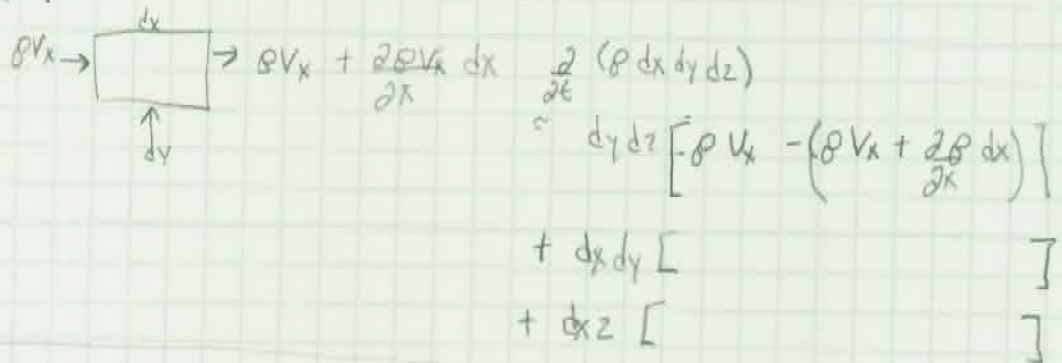 dx
ρVx → → ρVx + ∂ρVx/∂x dx ∂/∂t (ρ dx dy dz)
dy
= dy dz [ρ Vx - (ρ Vx + ∂ρ/∂x dx)]
+ dx dy [ ]
+ dx z [ ]